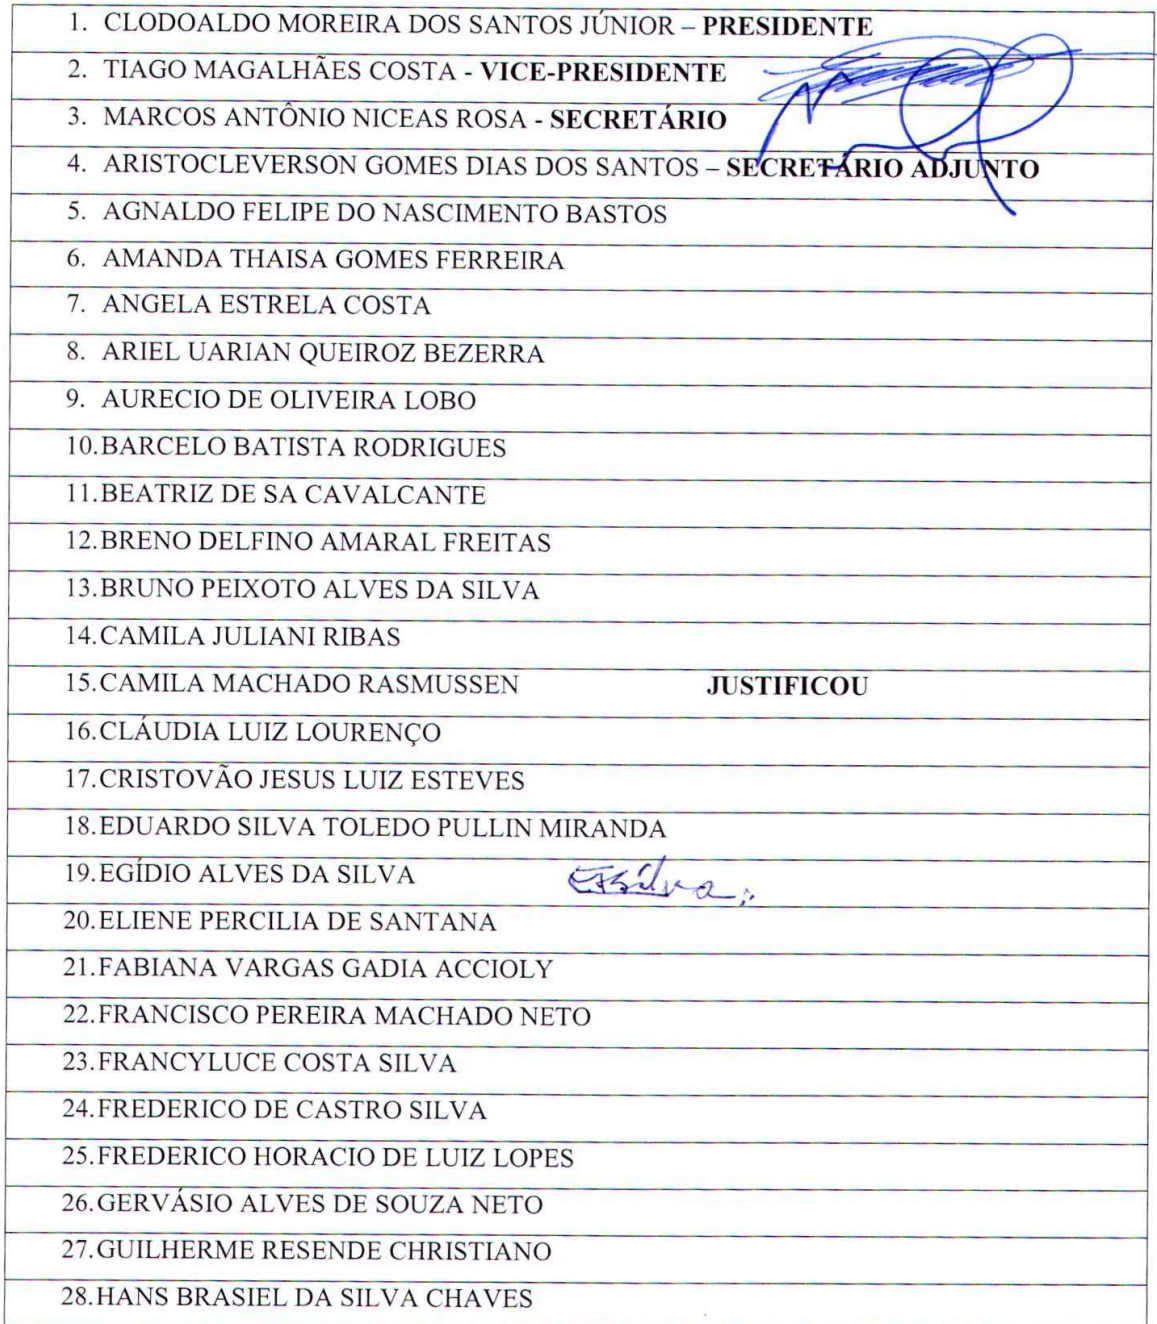 1. CLODOALDO MOREIRA DOS SANTOS JÚNIOR – PRESIDENTE
2. TIAGO MAGALHÃES COSTA - VICE-PRESIDENTE
3. MARCOS ANTÔNIO NICEAS ROSA - SECRETÁRIO
4. ARISTOCLEVERSON GOMES DIAS DOS SANTOS – SECRETÁRIO ADJUNTO
5. AGNALDO FELIPE DO NASCIMENTO BASTOS
6. AMANDA THAISA GOMES FERREIRA
7. ANGELA ESTRELA COSTA
8. ARIEL UARIAN QUEIROZ BEZERRA
9. AURECIO DE OLIVEIRA LOBO
10.BARCELO BATISTA RODRIGUES
11.BEATRIZ DE SA CAVALCANTE
12.BRENO DELFINO AMARAL FREITAS
13.BRUNO PEIXOTO ALVES DA SILVA
14.CAMILA JULIANI RIBAS
15.CAMILA MACHADO RASMUSSEN JUSTIFICOU
16.CLÁUDIA LUIZ LOURENÇO
17.CRISTOVÃO JESUS LUIZ ESTEVES
18.EDUARDO SILVA TOLEDO PULLIN MIRANDA
19.EGÍDIO ALVES DA SILVA
20.ELIENE PERCILIA DE SANTANA
21.FABIANA VARGAS GADIA ACCIOLY
22.FRANCISCO PEREIRA MACHADO NETO
23.FRANCYLUCE COSTA SILVA
24.FREDERICO DE CASTRO SILVA
25.FREDERICO HORACIO DE LUIZ LOPES
26.GERVÁSIO ALVES DE SOUZA NETO
27.GUILHERME RESENDE CHRISTIANO
28.HANS BRASIEL DA SILVA CHAVES